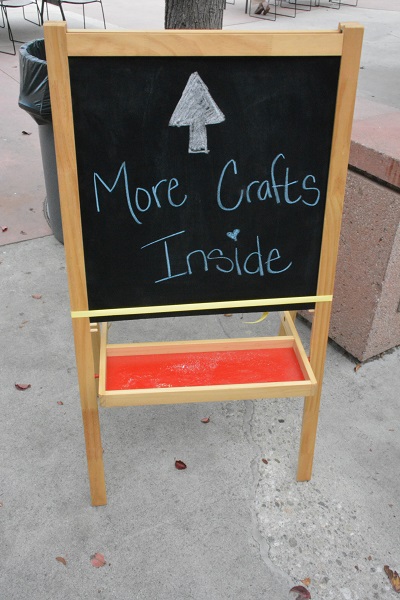 More Crafts
Inside